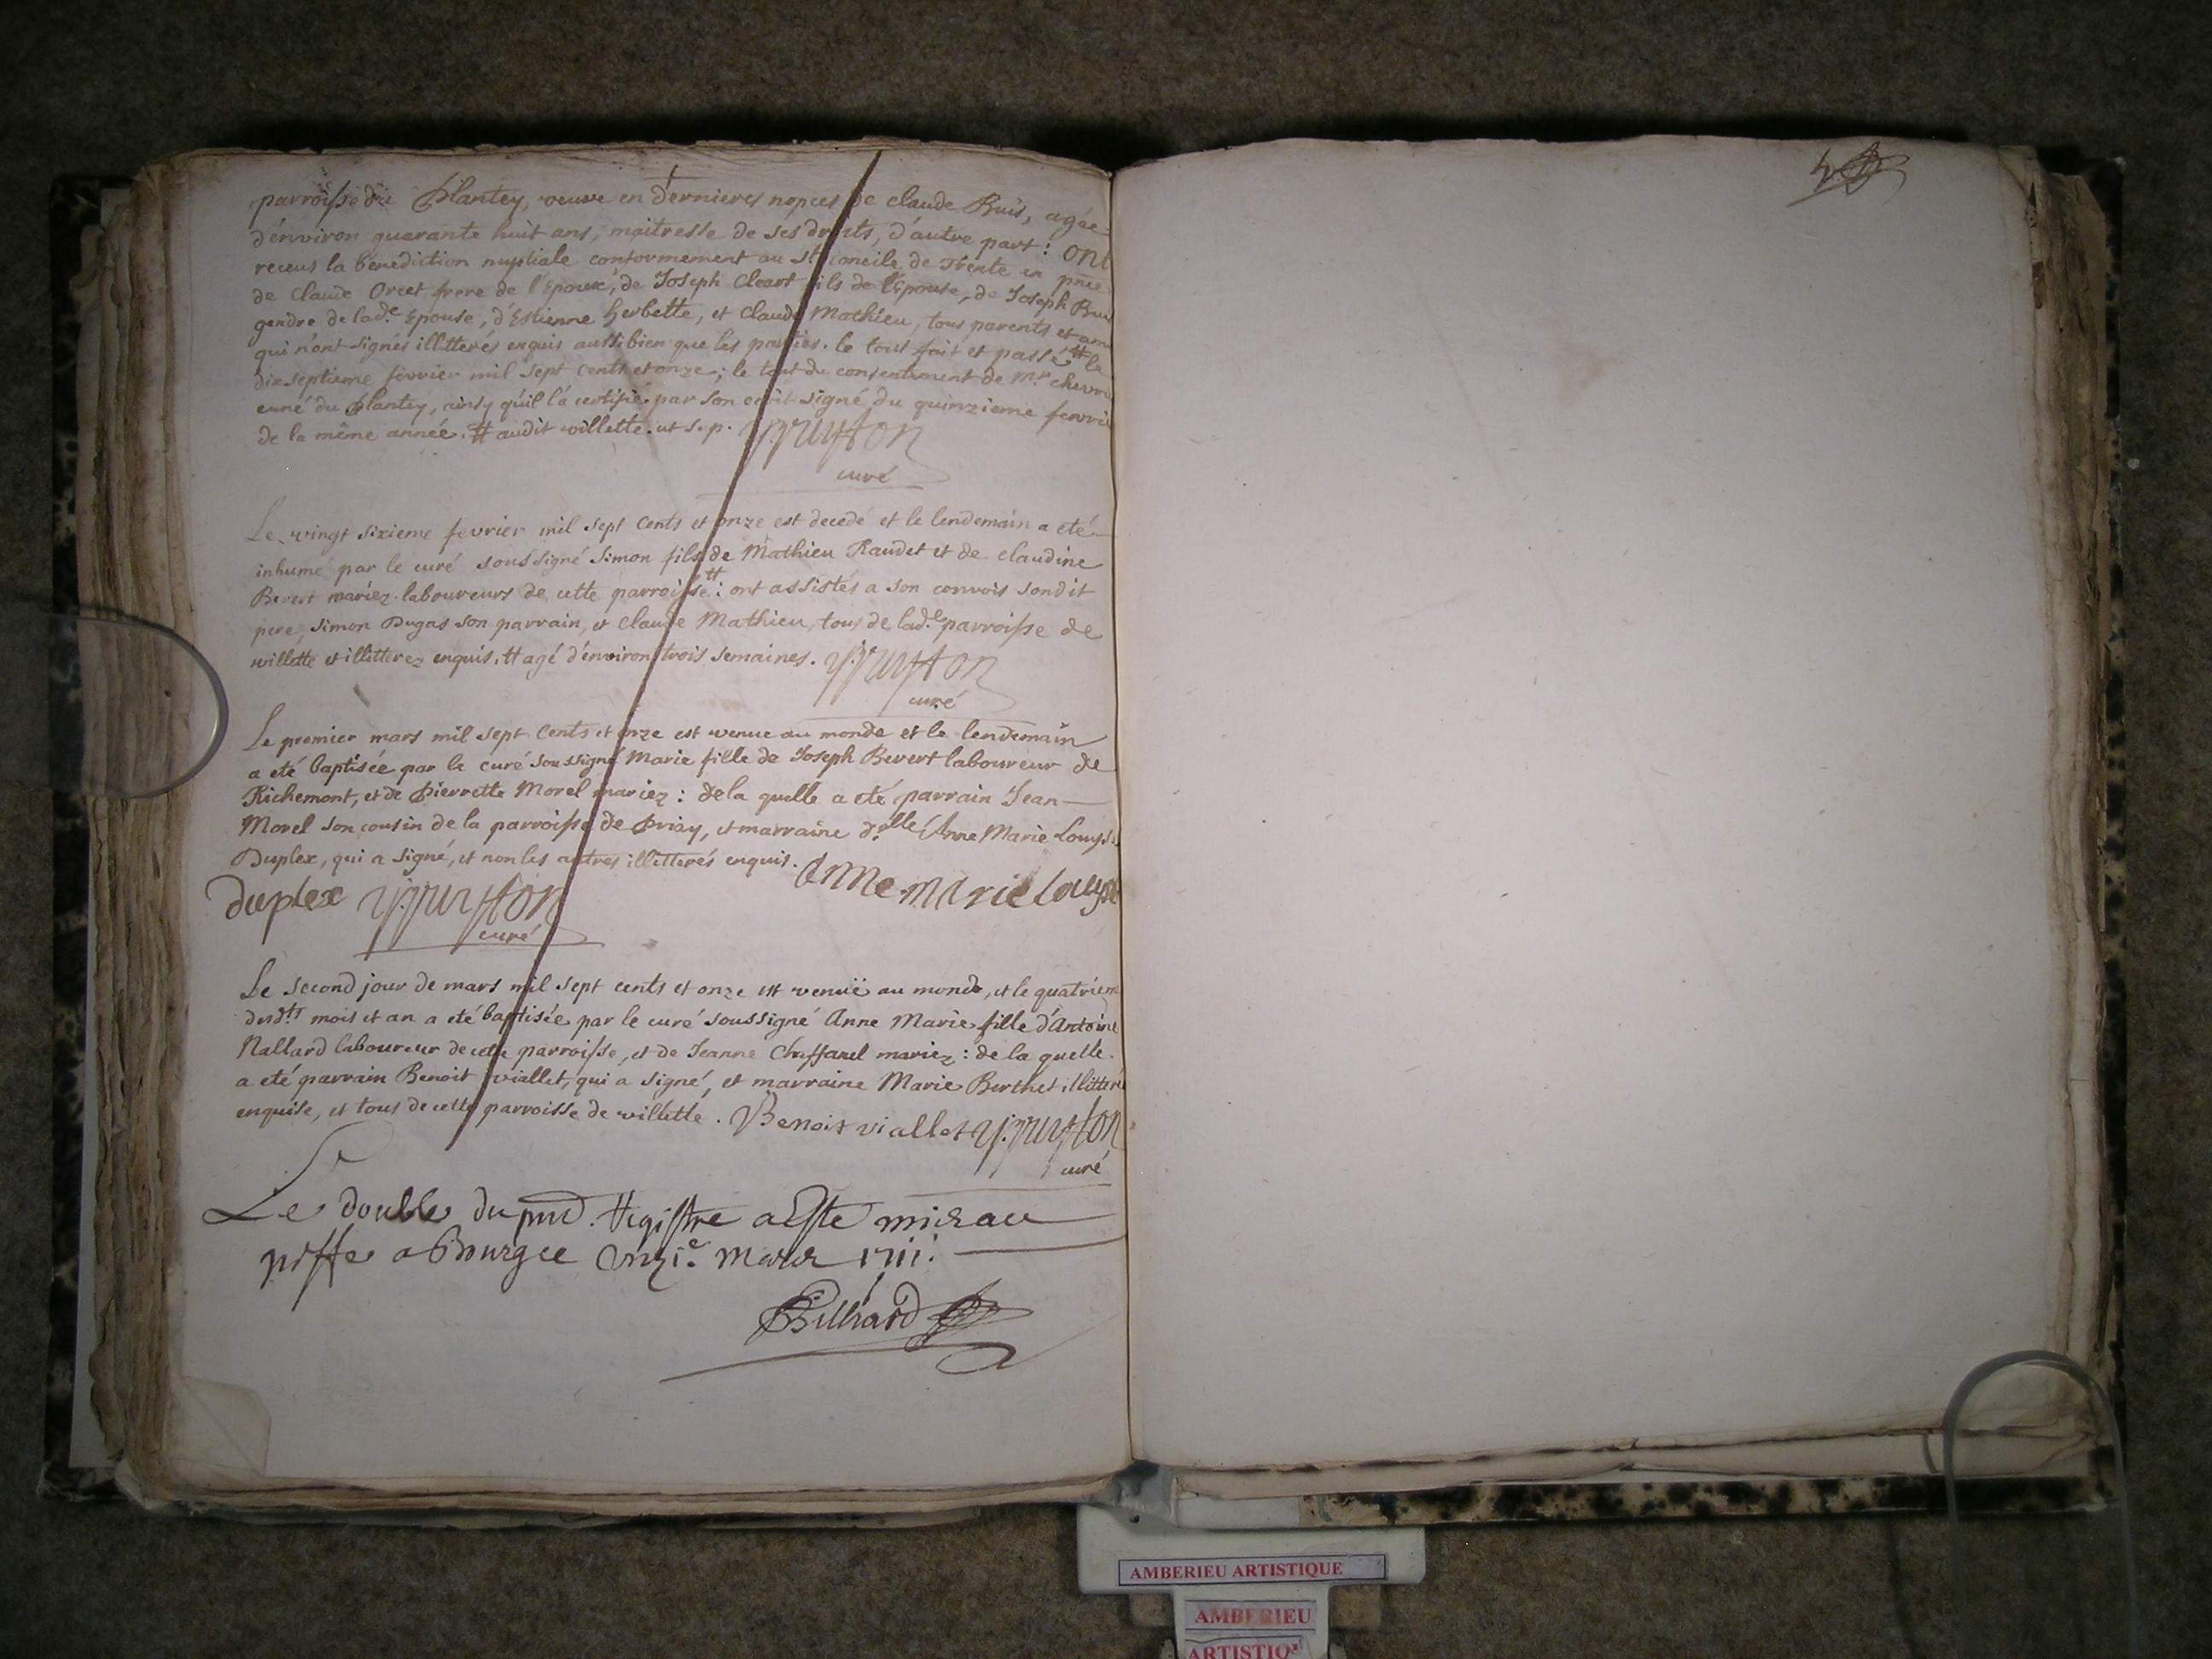 parroisse du Plantey, veuve en dernieres nopces de claude Buis, agée
d'environ quarante huit ans, maitresse de ses droits, d'autre part: ont
receus la bénediction nuptiale conformement au st concile de Trente en pnce
de Claude Orcet frere de l'Epoux, de Joseph Cleart fils de l'Epouse, de Joseph
gendre de lad.e Epouse, d'Estienne herbette, et Claude Mathieu, tous parents et am
qui n'ont signés illitterés enquis aussi bien que les parties. le tout fait et passé # le
dix septieme février mil sept cents et onze; le tout du consentement de mr. chevr
curé du Plantey, ainsy qu'il l'a certifié par son ecrit signé du quinzieme fevrie
de la même année. # audit villette. ut sup.
curé
Le vingt sixieme fevrier mil sept cents et onze est decedé et le lendemain a eté
inhumé par le curé soussigné Simon fils de Mathieu Raudet et de claudine
Bevert mariez laboureurs de cette parroisse #: ont assistés a son convois sondit
pere, Simon Dugas son parrain, et Claude Mathieu, tous de lad.e parroisse de
villette et illitterez enquis. # agé d'environ trois semaines.
curé
Le premier mars mil sept cents et onze est venue au monde et le lendemain
a eté baptisée par le curé soussigné Marie fille de Joseph Bevert laboureur de
Richemont, et de Pierrette Morel mariez: de la quelle a eté parrain Jean
Morel son cousin de la parroisse de Priay, et marraine d.elle Anne Marie Louyse
Duplex, qui a signé, et non les autres illitterés enquis. Anne marie louyse
duplex
curé
Le second jour de mars mil sept cents et onze est venuë au monde, et le quatriem
desd.ts mois et an a eté baptisée par le curé soussigné Anne Marie fille d'Antoine
Nallard laboureur de cette parroisse, et de Jeanne Chaffanel mariez: de la quelle
a eté parrain Benoit viallet, qui a signé, et marraine Marie Berthet illitteré
enquise, et tous de cette parroisse de villette. Benoit viallet
curé
Le double du pnd. Registre a Este mis au
greffe a Bourg ce mars 1711.
Billiard
AMBERIEU ARTISTIQUE
AMBERIEU